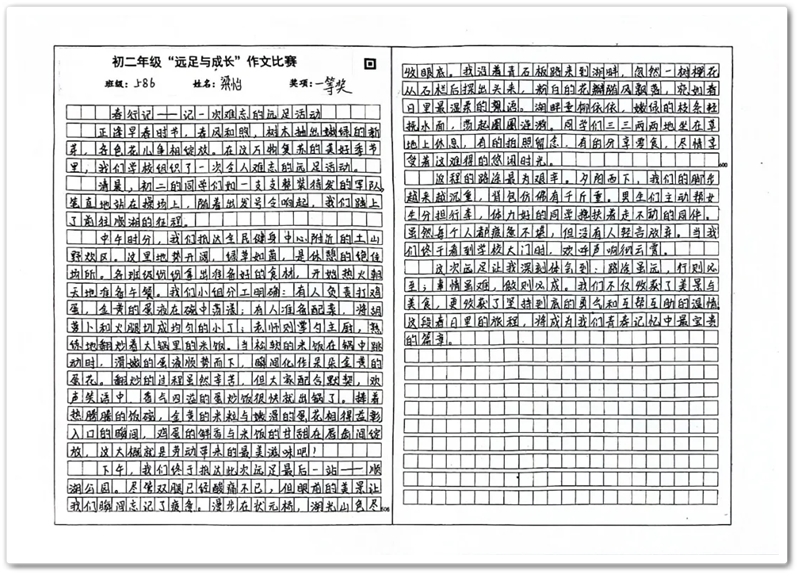 初二年级“远足与成长”作文比赛
班级：586 姓名：梁怡 奖项：一等奖
春行记——记一次难忘的远足活动
正逢早春时节，春风和煦，树木抽出嫩绿的新
芽，各色花儿争相绽放。在这万物复苏的美好季节
里，我们学校组织了一次令人难忘的远足活动。
清晨，初二的同学们如一支支整装待发的军队
笔直地站在操场上，随着出发号令响起，我们踏上
了前往顺湖的征程。
中午时分，我们抵达全民健身中心附近的土山
野炊区。这里地势开阔，绿草如茵，是休憩的绝佳
场所。各班级纷纷拿出准备好的食材，开始热火朝
天地准备午餐。我们小组分工明确：有人负责打鸡
蛋，金黄的蛋液在碗中荡漾；有人准备配菜，将胡
萝卜和火腿切成均匀的小丁；老师则掌勺主厨，熟
练地翻炒着大锅里的米饭。当松软的米饭在锅中跳
动时，滑嫩的蛋液顺势而下，瞬间化作朵朵金黄的
蛋花。翻炒的过程虽然辛苦，但大家配合默契，欢
声笑语中，香气四溢的蛋炒饭很快就出锅了。捧着
热腾腾的饭碗，金黄的米粒与嫩滑的蛋花相得益彰
入口的瞬间，鸡蛋的鲜香与米饭的甘甜在唇齿间绽
放，这大概就是劳动带来的最美滋味吧！
下午，我们终于抵达此次远足最后一站——顺
湖公园。尽管双腿已经酸痛不已，但眼前的美景让
我们瞬间忘记了疲惫。漫步在状元桥，湖光山色尽
收眼底。我沿着青石板路来到湖畔，忽然一树樱花
从石栏后探出头来，粉白的花瓣随风飘落，宛如春
日里最温柔的邂逅。湖畔垂柳依依，嫩绿的枝条轻
抚水面，荡起圈圈涟漪。同学们三三两两地坐在草
地上休息，有的拍照留念，有的分享零食，尽情享
受着这难得的悠闲时光。
返程的路途最为艰辛。夕阳西下，我们的脚步
越来越沉重，背包仿佛有千斤重。男生们主动帮女
生分担行李，体力好的同学搀扶着走不动的同伴。
虽然每个人都疲惫不堪，但没有人轻言放弃。当我
们终于看到学校大门时，欢呼声响彻云霄。
这次远足让我深刻体会到：路途虽远，行则必
至；事情虽难，做则必成。我们不仅收获了美景与
美食，更收获了坚持到底的勇气和互帮互助的温情
这段春日里的旅程，将成为我们青春记忆中最宝贵
的篇章。